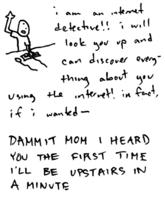 i am an internet
detective!! i will
look you up and
can discover every-
thing about you
using the internet! in fact,
if i wanted—
DAMMIT MOM I HEARD
YOU THE FIRST TIME
I'LL BE UPSTAIRS IN
A MINUTE